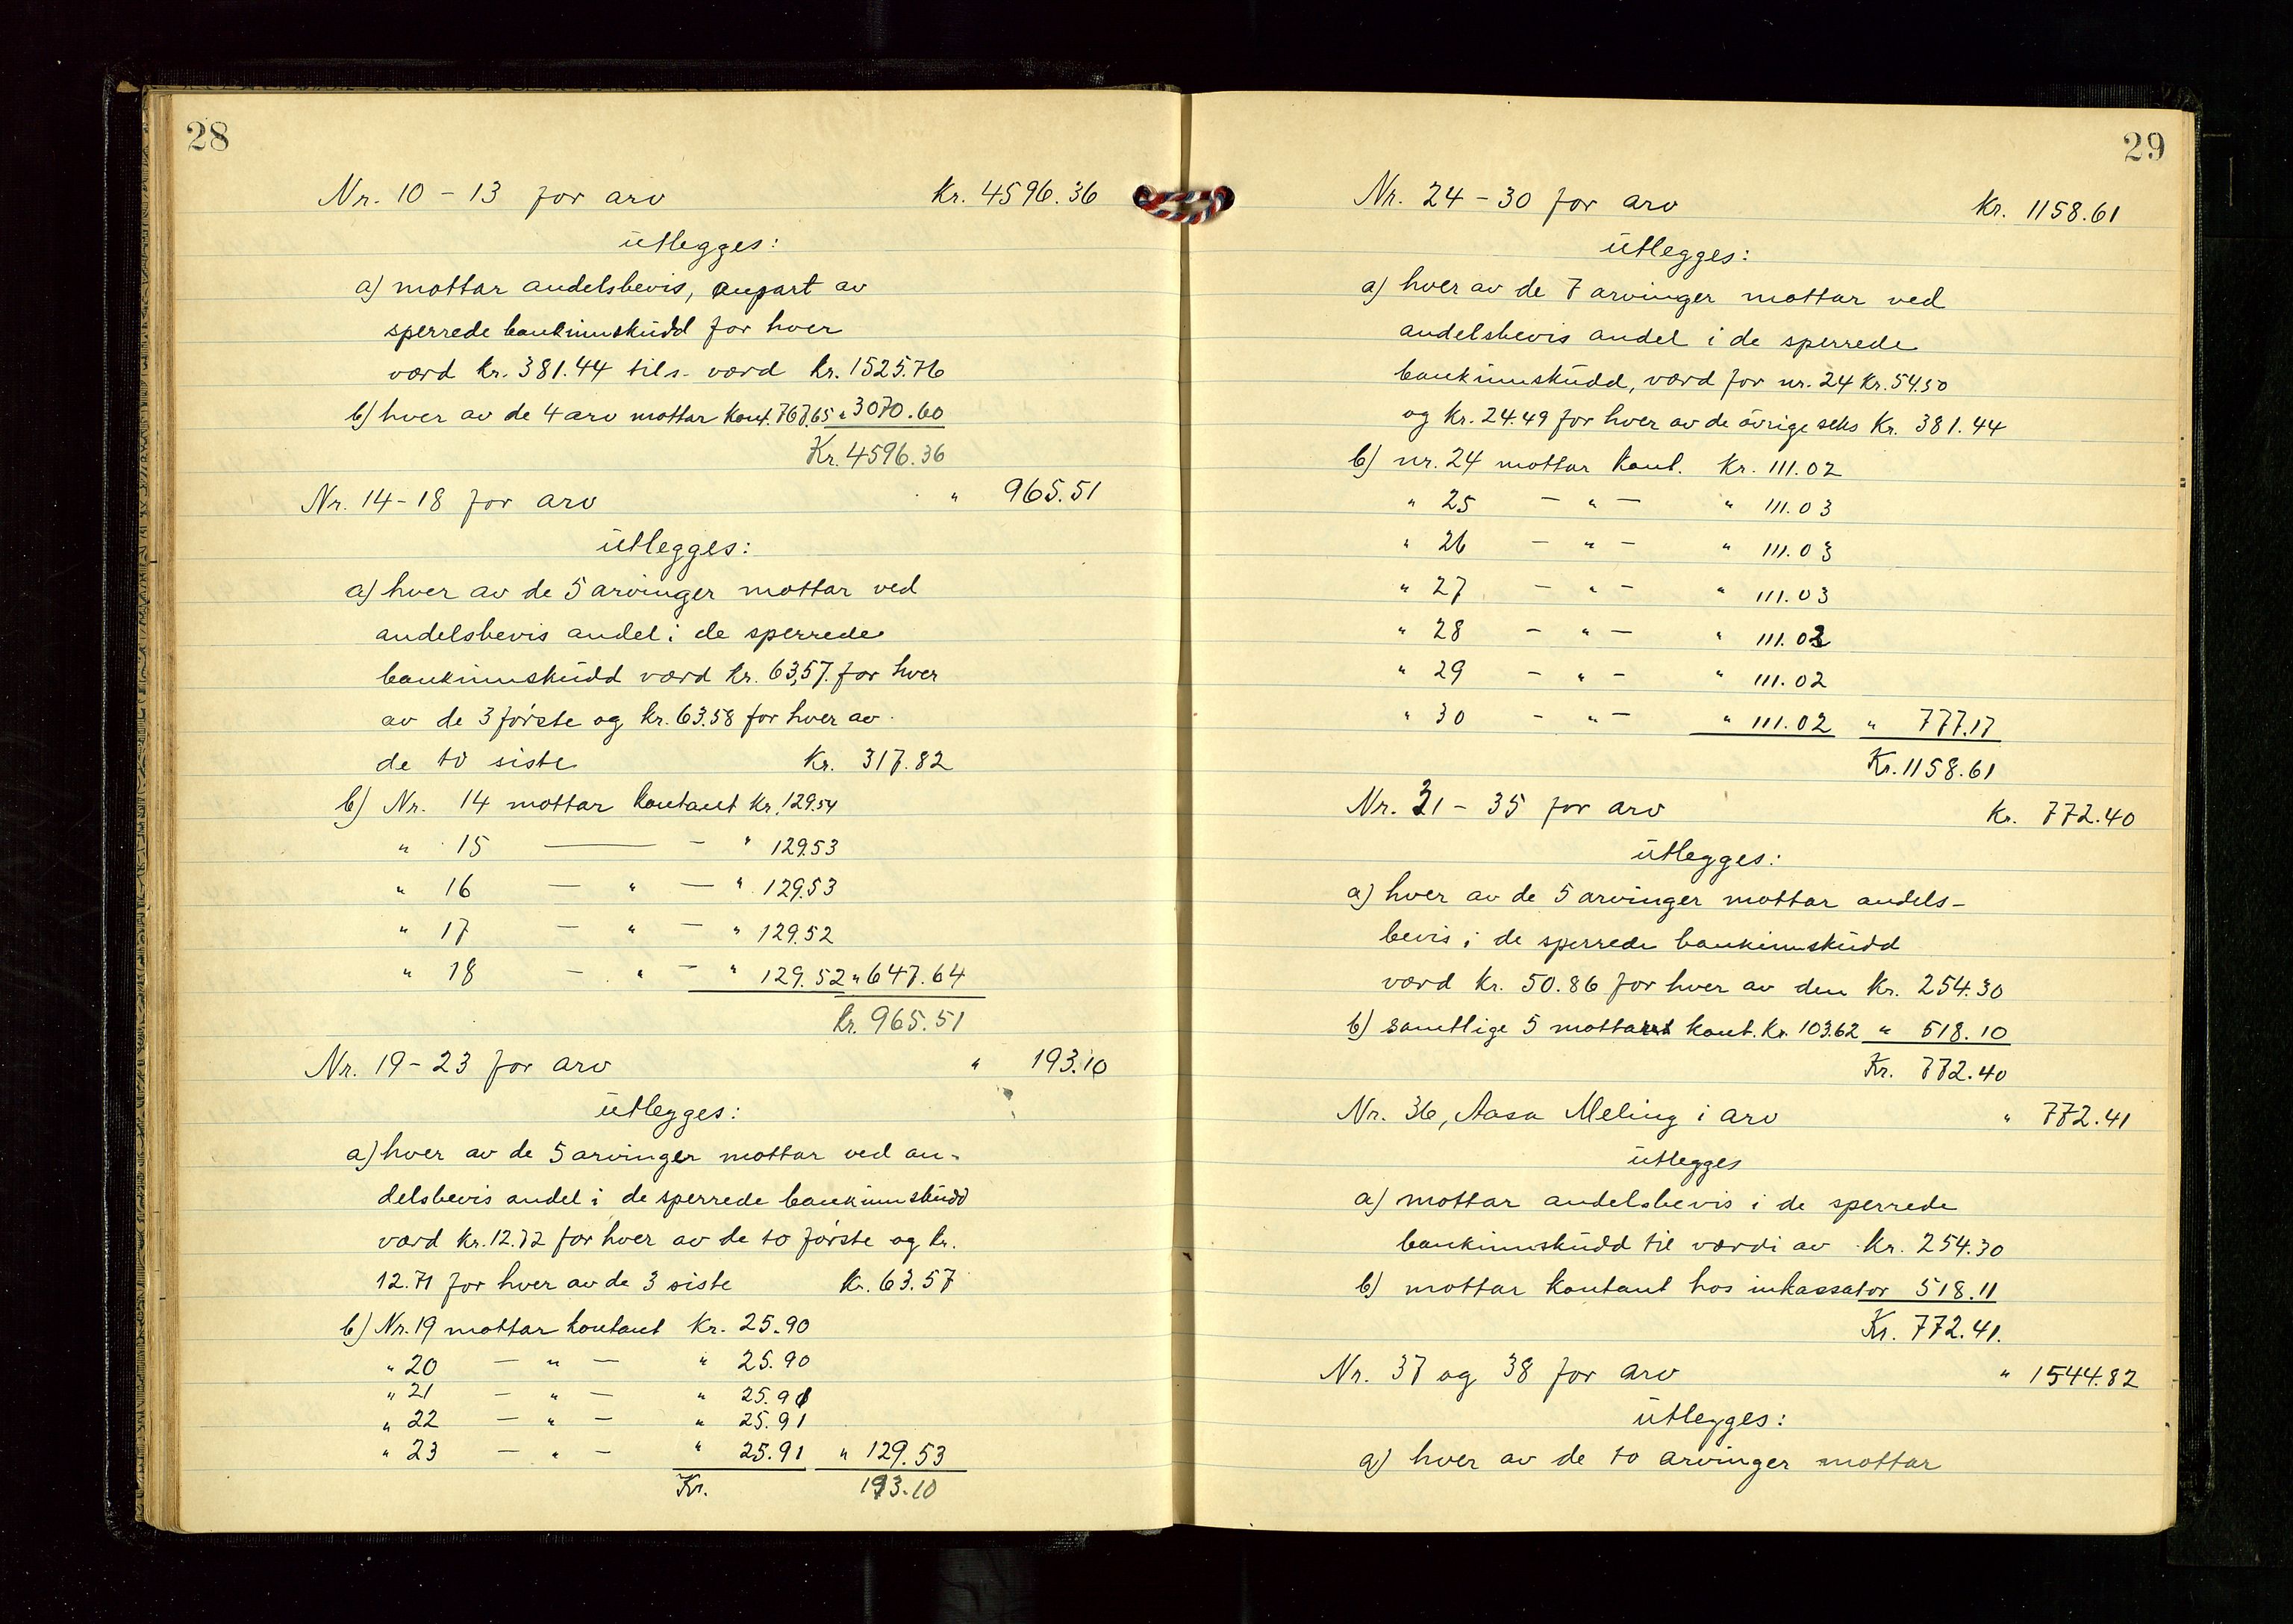 28
Nr. 10 - 13 for arv Kr. 4596.36
utlegges:
a) mottar andelsbevis, anpart av
sperrede bankinnskudd for hver
værd kr. 381.44 tils. værd kr. 1525.76
b) hver av de 4 arv mottar kont. 767.65 " 3070.60
Kr. 4596.36
Nr. 14 - 18 for arv " 965.51
utlegges:
a) hver av de 5 arvinger mottar ved
andelsbevis andel i de sperrede
bankinnskudd værd kr. 63,57 for hver
av de 3 første og kr. 63.58 for hver av
de to siste Kr. 317.82
b) Nr. 14 mottar kontant Kr. 129.54
" 15 — - " 129.53
" 16 — " — " 129.53
" 17 — " — " 129.52
" 18 — " — " 129.52 " 647.64
kr. 965.51
Nr. 19 - 23 for arv " 193.10
utlegges:
a) hver av de 5 arvinger mottar ved an-
delsbevis andel i de sperrede bankinnskudd
værd kr. 12.72 for hver av de to første og kr.
12.71 for hver av de 3 siste kr. 63.57
b) Nr. 19 mottar kontant Kr. 25.90
" 20 — " — " 25.90
" 21 — " — " 25.91
" 22 — " — " 25.91
" 23 — " — " 25.91 " 129.53
Kr. 193.10
29
Nr. 24 - 30 for arv Kr. 1158.61
utlegges:
a) hver av de 7 arvinger mottar ved
andelsbevis andel i de sperrede
bankinnskudd, værd for nr. 24 Kr. 54.50
og Kr. 24.49 for hver av de øvrige seks Kr. 381.44
b) nr. 24 mottar kont. Kr. 111.02
" 25 — " — " 111.03
" 26 — " — " 111.03
" 27 — " — " 111.03
" 28 — " — " 111.02
" 29 — " — " 111.02
" 30 — " — " 111.02 " 777.17
Kr. 1158.61
Nr. 31 - 35 for arv Kr. 772.40
utlegges:
a) hver av de 5 arvinger mottar andels-
bevis i de sperrede bankinnskudd
værd kr. 50.86 for hver av den Kr. 254.30
b) samtlige 5 mottar kont. Kr. 103.62 " 518.10
Kr. 772.40
Nr. 36, Aasa Meling i arv " 772.41
utlegges
a) mottar andelsbevis i de sperrede
bankinnskudd til værdi av Kr. 254.30
b) mottar kontant hos inkassator 518.11
Kr. 772.41.
Nr. 37 og 38 for arv " 1544.82
utlegges:
a) hver av de to arvinger mottar